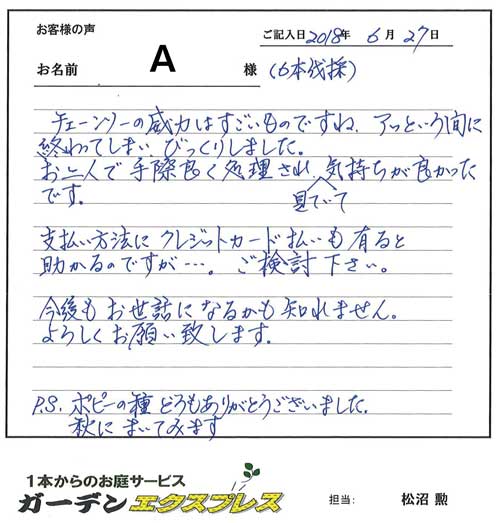 お客様の声
ご記入日 2018年 6月 27日
お名前 A 様 (6本伐採)
チェーンソーの威力はすごいものですね、アッという間に
終わってしまい びっくりしました。
お二人で手際良く処理され、見ていて気持ちが良かった
です。
支払い方法に クレジットカード払いも有ると
助かるのですが…。ご検討下さい。
今後も お世話になるかも 知れません。
よろしくお願い致します。
P.S. ポピーの種 どうもありがとうございました。
秋に まいてみます
1本からのお庭サービス
ガーデンエクスプレス
担当: 松沼 勲